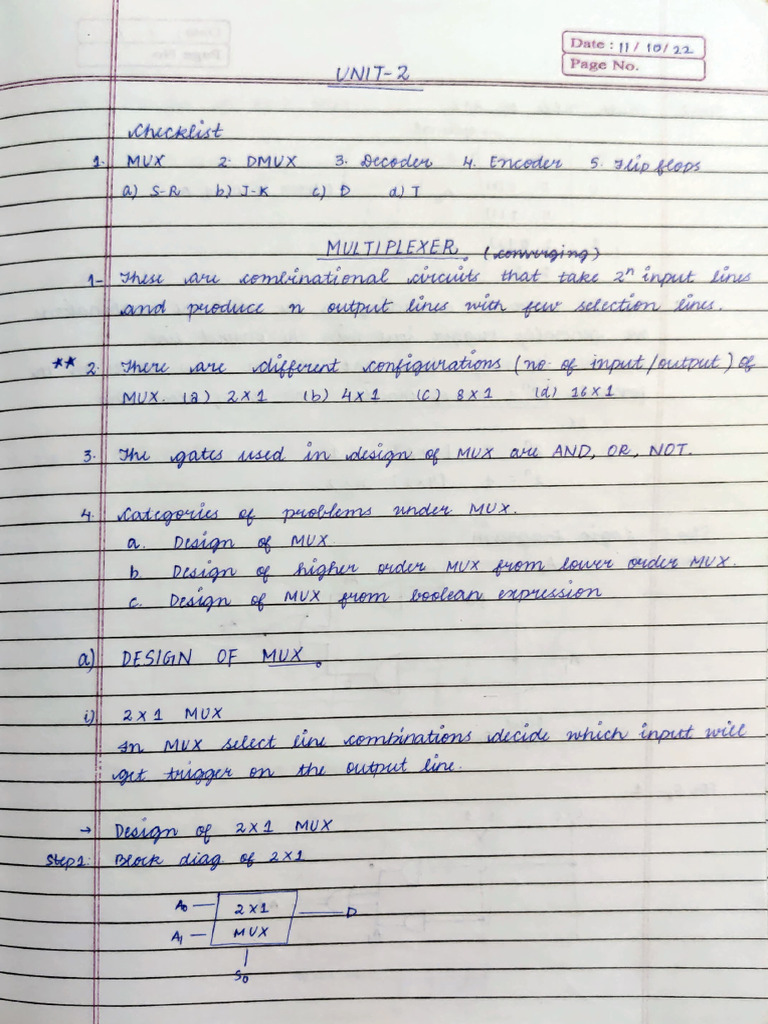 Date : 11 / 10 / 22
Page No.
UNIT-2
Checklist
1. MUX 2. DMUX 3. Decoder 4. Encoder 5. Flip flops
a) S-R b) J-K c) D d) T
MULTIPLEXER. (converging)
1- These are combinational circuits that take 2ⁿ input lines
and produce n output lines with few selection lines.
** 2. There are different configurations (no. of input/output) of
MUX. (a) 2x1 (b) 4x1 (c) 8x1 (d) 16x1
3. The gates used in design of MUX are AND, OR, NOT.
4. Categories of problems under MUX.
a. Design of MUX
b. Design of higher order MUX from lower order MUX.
c. Design of MUX from boolean expression
a) DESIGN OF MUX.
i) 2x1 MUX
In MUX select line combinations decide which input will
get trigger on the output line.
→ Design of 2x1 MUX
Step 1: Block diag. of 2x1
A₀ 2x1 D
A₁ MUX
S₀